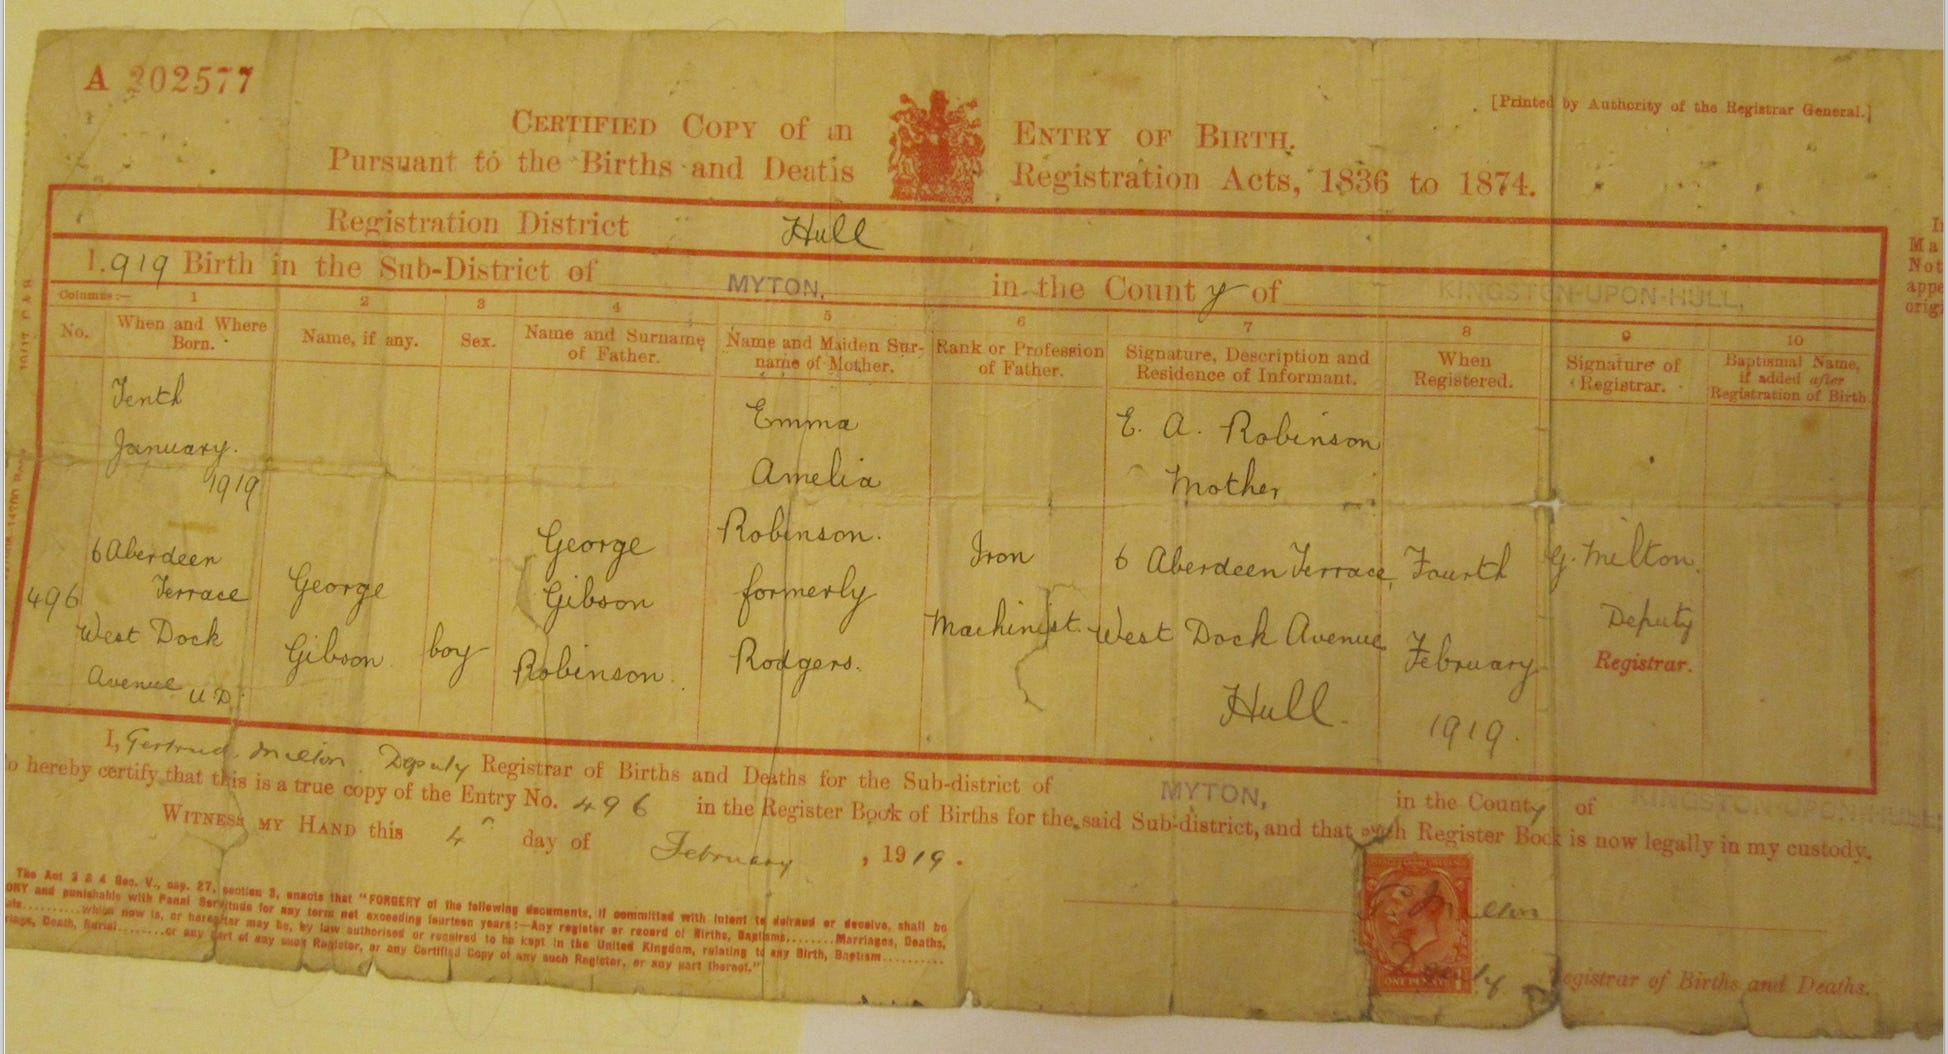 A 202577
[Printed by Authority of the Registrar General.]
CERTIFIED COPY of an ENTRY OF BIRTH.
Pursuant to the Births and Deaths Registration Acts, 1836 to 1874.
Registration District Hull
1.919 Birth in the Sub-District of MYTON, in the County of KINGSTON-UPON-HULL,
Columns:— 1 2 3 4 5 6 7 8 9 10
No.
When and Where
Born.
Name, if any.
Sex.
Name and Surname
of Father.
Name and Maiden Sur-
name of Mother.
Rank or Profession
of Father.
Signature, Description and
Residence of Informant.
When
Registered.
Signature of
Registrar.
Baptismal Name,
if added after
Registration of Birth.
496
Tenth
January.
1919
6 Aberdeen
Terrace
West Dock
Avenue U.D.
George
Gibson
boy
George
Gibson
Robinson.
Emma
Amelia
Robinson.
formerly
Rodgers.
Iron
Machinist.
E. A. Robinson
Mother
6 Aberdeen Terrace,
West Dock Avenue
Hull.
Fourth
February
1919.
G. Milton.
Deputy
Registrar.
I, Milton Deputy Registrar of Births and Deaths for the Sub-district of MYTON, in the County of KINGSTON-UPON-HULL,
o hereby certify that this is a true copy of the Entry No. 496 in the Register Book of Births for the said Sub-district, and that such Register Book is now legally in my custody.
WITNESS MY HAND this 4th day of February, 1919.
The Act 3 & 4 Geo. V., cap. 27, section 3, enacts that "FORGERY of the following documents, if committed with intent to defraud or deceive, shall be
ORY and punishable with Penal Servitude for any term not exceeding fourteen years:—Any register or record of Births, Baptisms........Marriages, Deaths,
which now is, or hereafter may be, by law authorised or required to be kept in the United Kingdom, relating to any Birth, Baptism..........
riage, Death, Burial........or any part of any such Register, or any Certified Copy of any such Register, or any part thereof."
Milton
ONE PENNY
egistrar of Births and Deaths.
Ma
Not
appe
orig